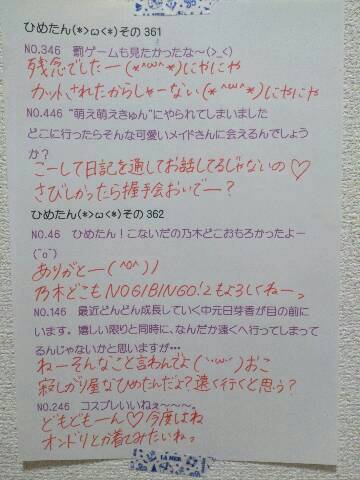 ひめたん(*>ω<*)その 361
NO.346　罰ゲームも見たかったな～(>_<)
残念でしたー(*^ω^*)にやにや
カットされたからしゃーない(*^ω^*)にやにや
NO.446 "萌え萌えきゅん"にやられてしまいました
どこに行ったらそんな可愛いメイドさんに会えるんでしょう
か？
こーして日記を通してお話してるじゃないの♡
さびしかったら握手会おいでー？
ひめたん(*>ω<*)その 362
NO.46　ひめたん！こないだの乃木どこおもろかったよー
(^o^)
ありがとー(^o^)ノ
乃木どこもNOGIBINGO!2もよろしくねーっ
NO.146　最近どんどん成長していく中元日芽香が目の前に
います。嬉しい限りと同時に、なんだか遠くへ行ってしまって
るんじゃないかと思いますが…
ねーそんなこと言わんでよ(˙ω˙)おこ
寂しがり屋なひめたんだよ？遠く行くと思う？
NO.246　コスプレいいねぇ～～～。
どもどもーん♡今度はね
オンドリとか着てみたいねっ
LA MER